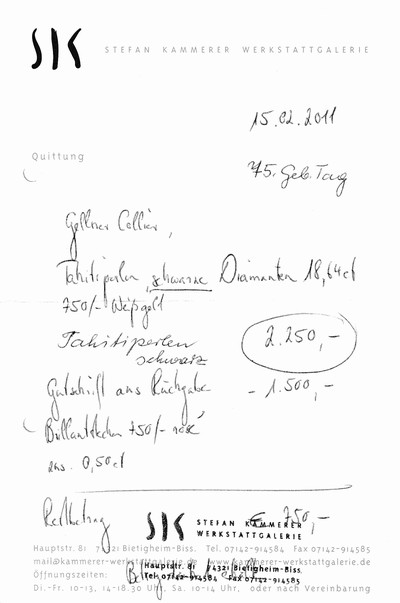 SIK STEFAN KAMMERER WERKSTATTGALERIE
15.02.2011
Quittung
75. Geb. Tag
Gellner Collier,
Tahitiperlen, schwarze Diamanten 18,64ct
750/- Weißgold
Tahitiperlen 2.250,-
schwarz
Gutschrift aus Rückgabe - 1.500,-
Brillantkette 750/- rosé
zus. 0,50ct
Restbetrag € 750,-
SIK STEFAN KAMMERER
WERKSTATTGALERIE
Hauptstr. 81 74321 Bietigheim-Biss. Tel. 07142-914584 Fax 07142-914585
mail@kammerer-werkstattgalerie.de www.kammerer-werkstattgalerie.de
Hauptstr. 81 74321 Bietigheim-Biss.
Öffnungszeiten:
Tel. 07142-914584 Fax 07142-914585
Di.-Fr. 10-13, 14-18.30 Uhr, Sa. 10-14 Uhr, oder nach Vereinbarung